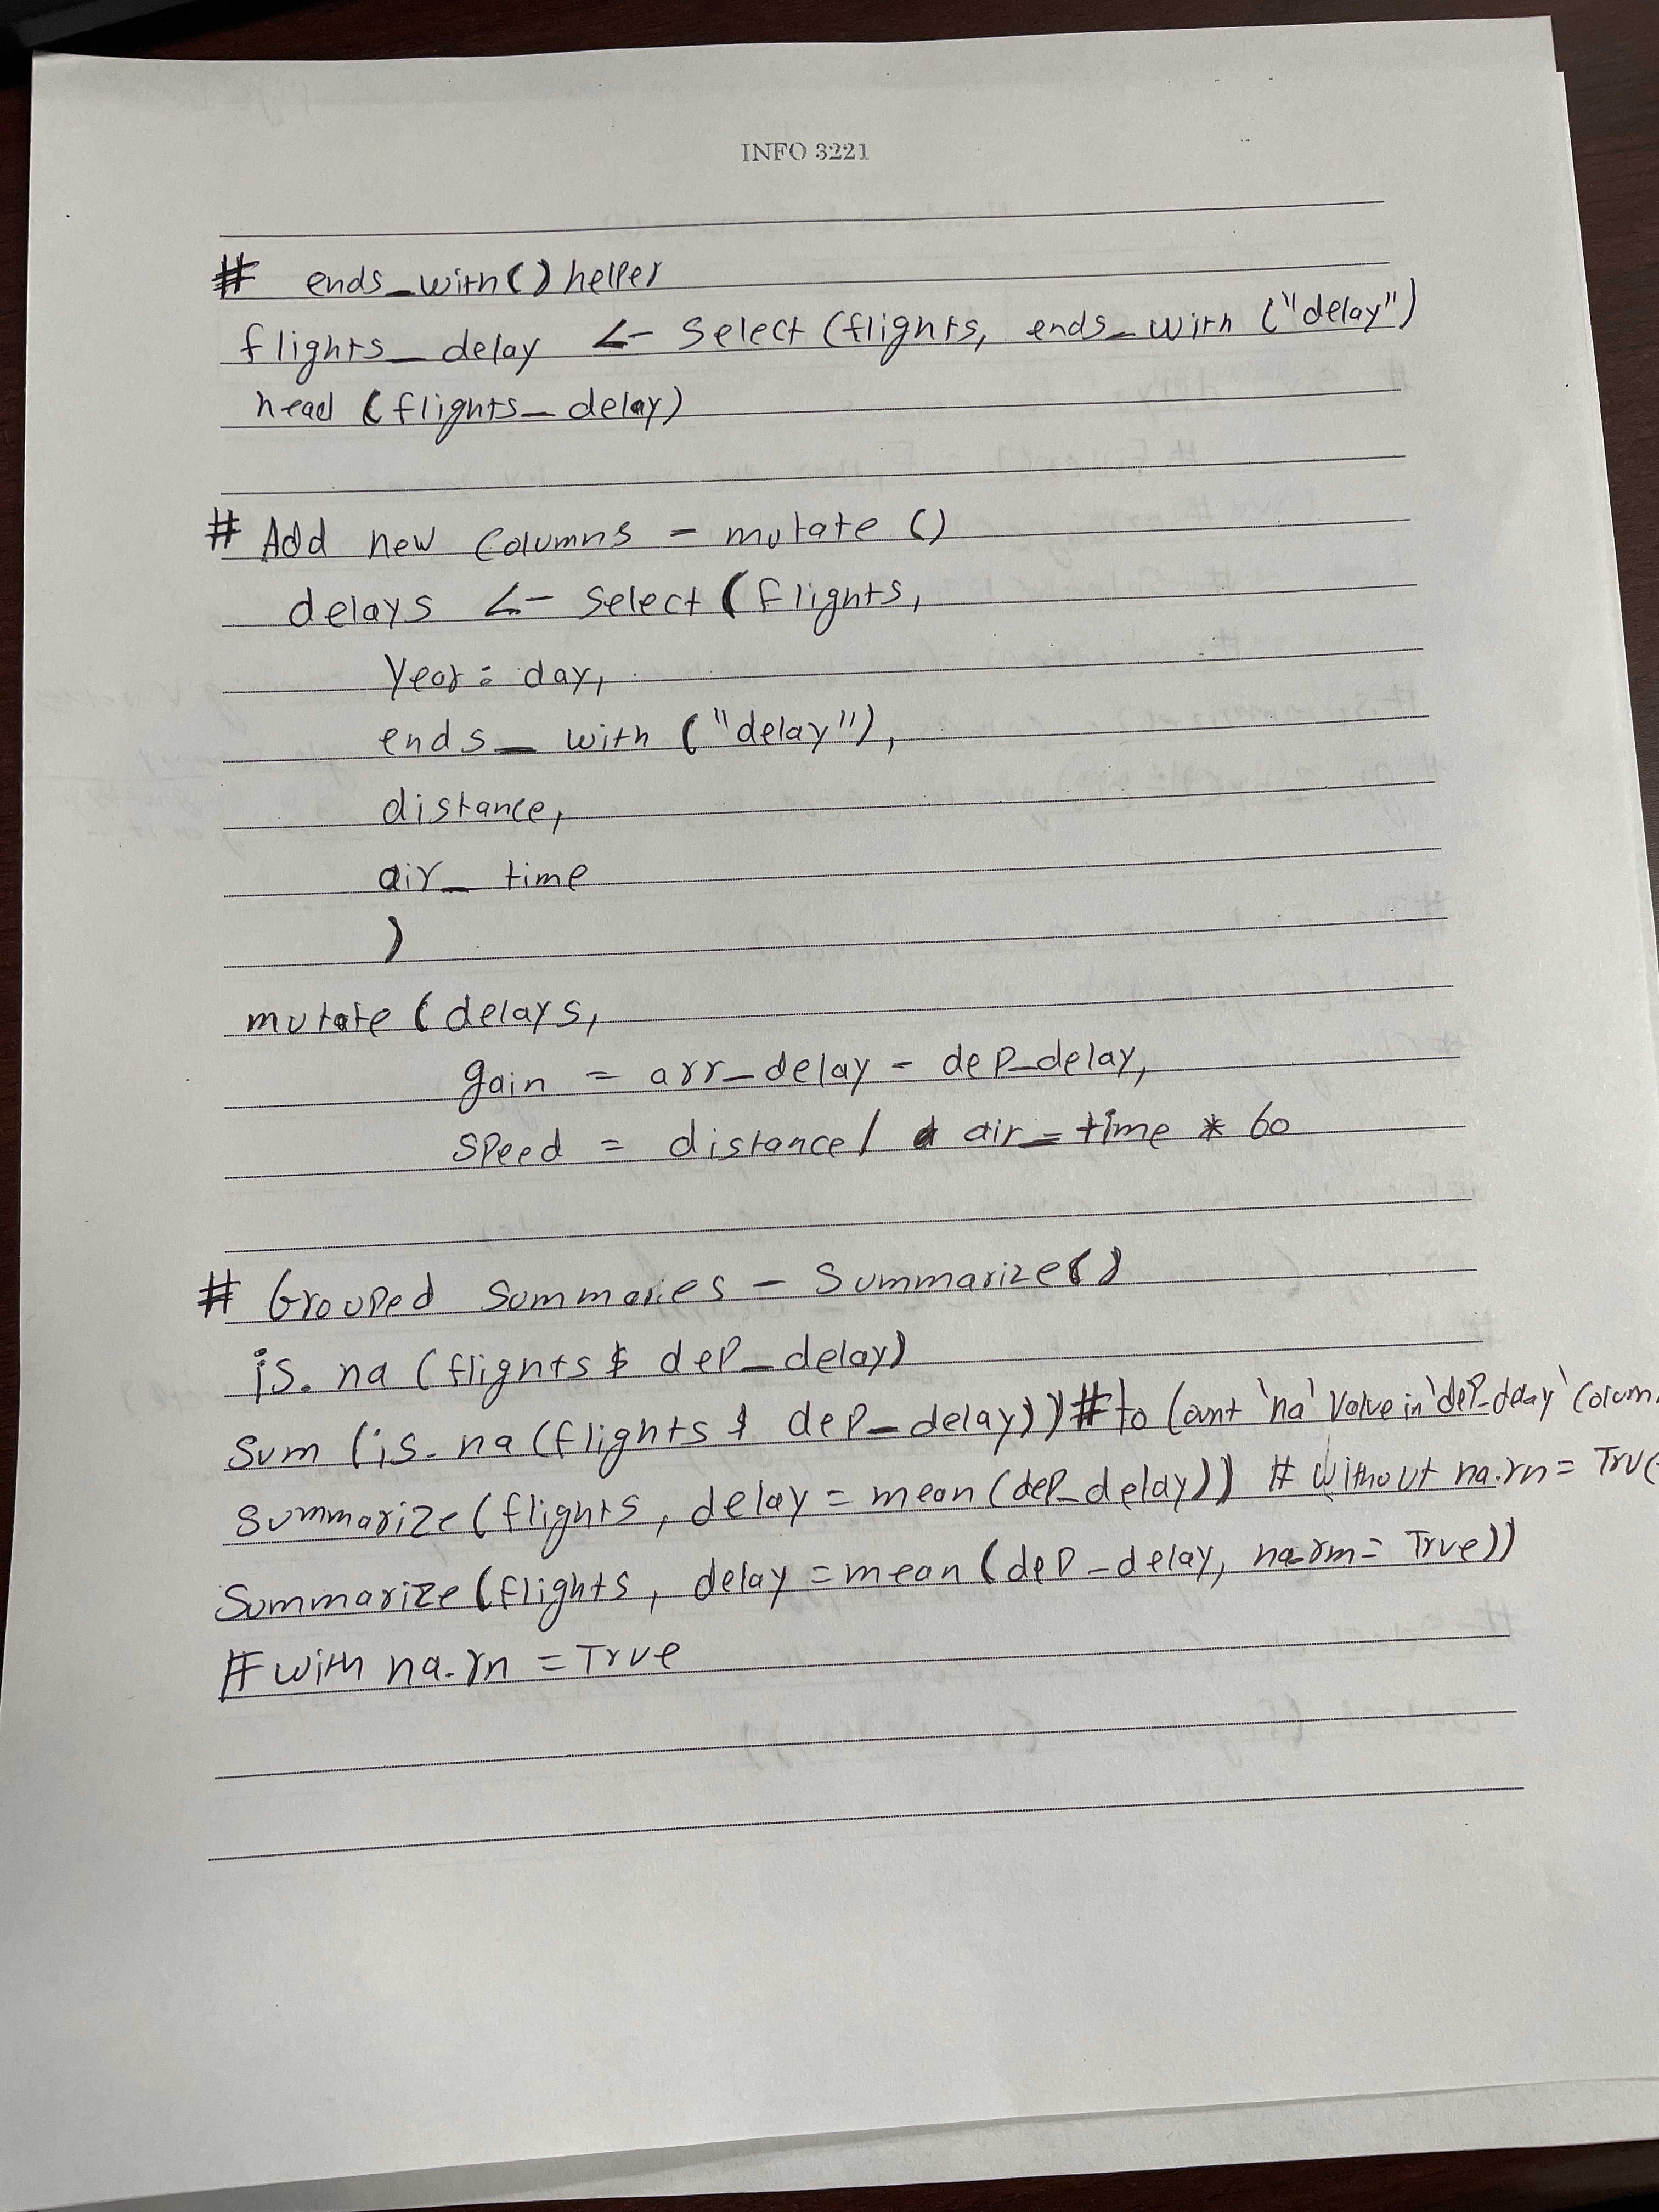 INFO 3221
# ends_with() helper
flights_delay <- Select (flights, ends_with ("delay")
head (flights_delay)
# Add new Columns - mutate ()
delays <- Select (flights,
Year: day,
ends_with ("delay"),
distance,
air_time
)
mutate (delays,
gain = arr_delay - dep_delay,
Speed = distance / air_time * 60
# Grouped Summaries - Summarize()
is.na (flights$ dep_delay)
Sum (is.na (flights $ dep_delay)) # to Count 'na' Value in 'dep_delay' Colum
Summarize (flights, delay = mean (dep_delay)) # Without na.rn = True
Summarize (flights, delay = mean (dep_delay, na.rm = True))
# with na.rn = True